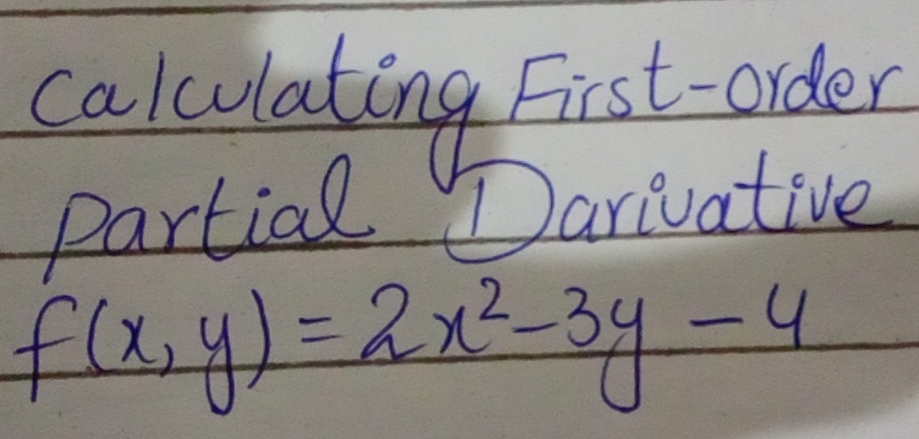 Calculating First-order
Partial Darivative
f(x, y) = 2x²-3y - 4